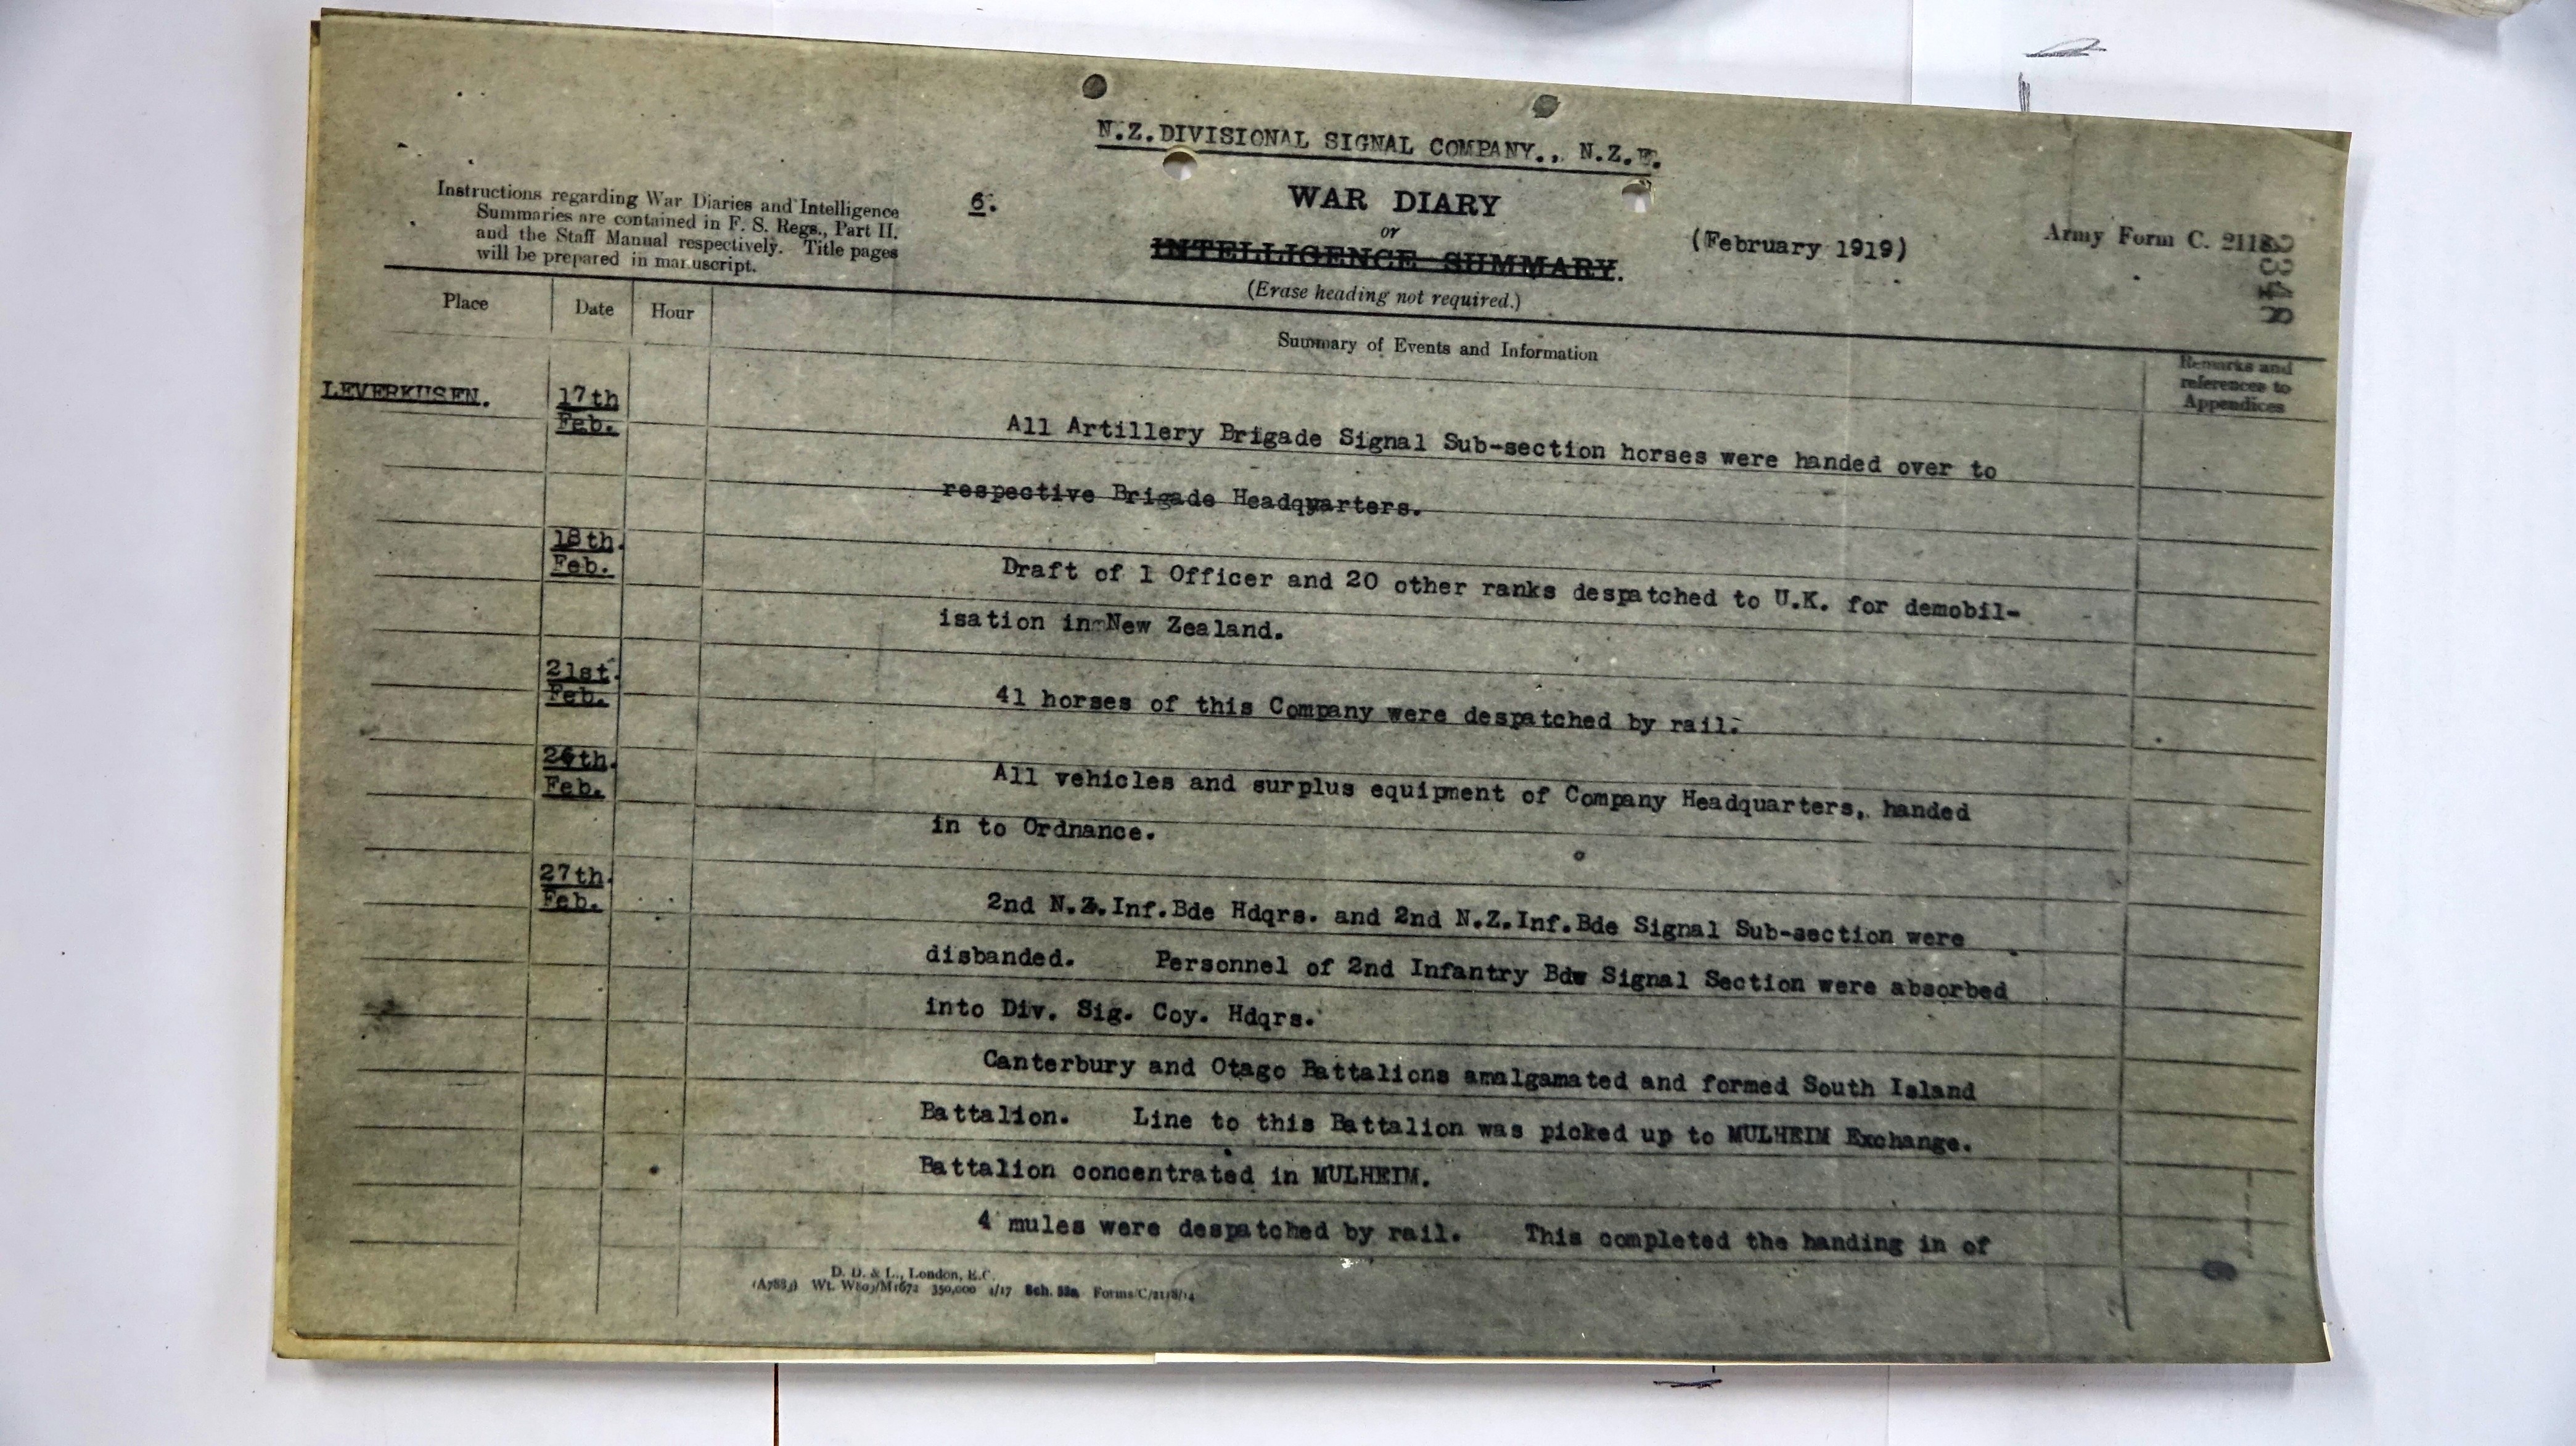 N.Z.DIVISIONAL SIGNAL COMPANY., N.Z.E.
Instructions regarding War Diaries and Intelligence
Summaries are contained in F. S. Regs., Part II.
and the Staff Manual respectively. Title pages
will be prepared in manuscript.
6.
WAR DIARY
or
INTELLIGENCE SUMMARY.
(Erase heading not required.)
(February 1919)
Army Form C. 2118.
Place Date Hour
Summary of Events and Information
Remarks and
references to
Appendices
LEVERKUSEN.
17th
Feb.
All Artillery Brigade Signal Sub-section horses were handed over to
respective Brigade Headquarters.
18th.
Feb.
Draft of 1 Officer and 20 other ranks despatched to U.K. for demobil-
isation in New Zealand.
21st.
Feb.
41 horses of this Company were despatched by rail.
26th.
Feb.
All vehicles and surplus equipment of Company Headquarters, handed
in to Ordnance.
27th.
Feb.
2nd N.Z.Inf.Bde Hdqrs. and 2nd N.Z.Inf.Bde Signal Sub-section were
disbanded. Personnel of 2nd Infantry Bde Signal Section were absorbed
into Div. Sig. Coy. Hdqrs.
Canterbury and Otago Battalions amalgamated and formed South Island
Battalion. Line to this Battalion was picked up to MULHEIM Exchange.
Battalion concentrated in MULHEIM.
4 mules were despatched by rail. This completed the handing in of
D. D. & L., London, E.C.
Wt. W809/M1672 350,000 4/17 Sch. 52a Forms/C/2118/14